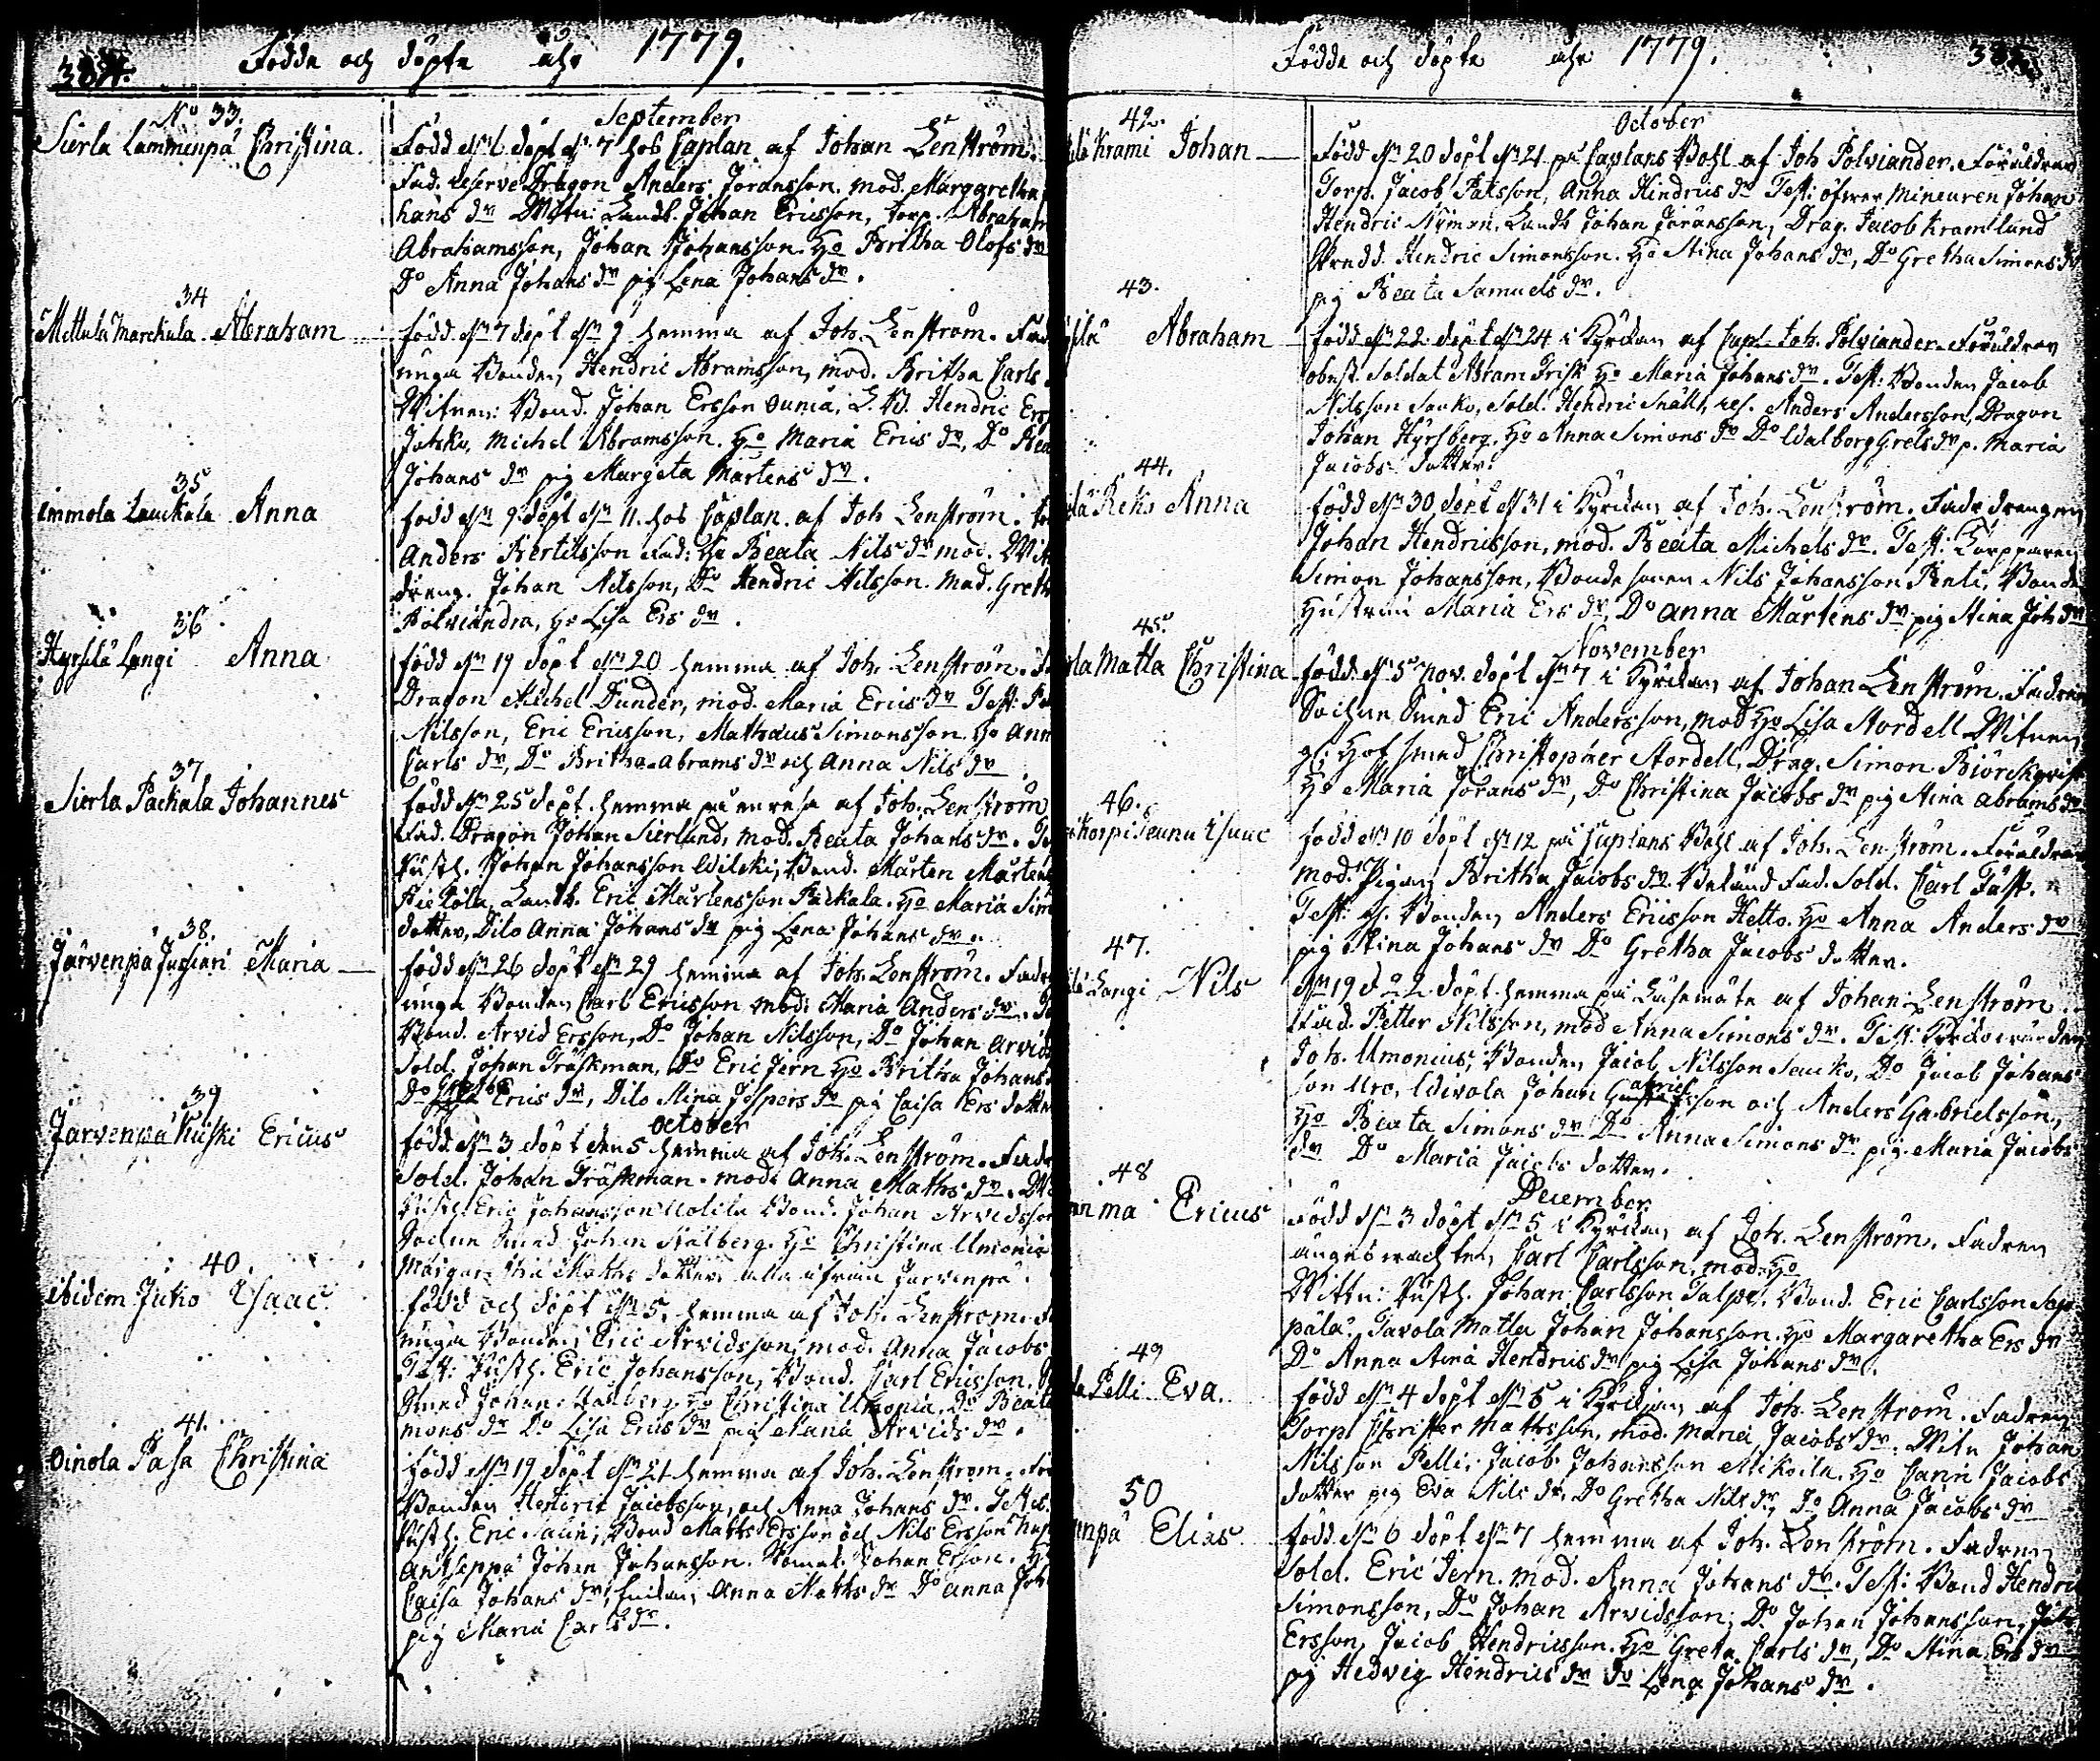 384.
Födde och döpte åhr 1779.
No 33.
Sierla Lammenpä Christina.
September
Född dn 6 döpt dn 7 hos Caplan af Johan Lenström.
Fad. reserve Dragon Anders Joransson. mod. Margaretha
hans dr Witn: Landb. Johan Ericsson, torp. Abraham
Abrahamsson, Johan Johansson. Ho Britha Olofs dr
Do Anna Johans dr pig Lena Johans dr.
34
Mettula Marckula Abraham
född dn 7 döpt dn 9 hemma af Joh. Lenström. Fad
unga Bonden, Hendric Abramsson, mod. Britha Carls
Witnen: Bond. Johan Ersson Ounia, L. B. Hendric Ers
Jotsko, Michel Abramsson. Ho Maria Erics dr, Do Bea
Johans dr pig Margeta Mårtens dr.
35
immola Lauckala Anna
född dn 9 döpt dn 11. hos Caplan. af Joh Lenström.
Anders Bertilsson Fad: Ho Beata Nils dr mod. Wit
dreng. Johan Nilsson, Do Hendric Nilsson. Mad. Greth
Polviandra, Ho Lisa Ers dr.
36
Hyrsilä Langi Anna
född dn 19 döpt dn 20 hemma af Joh. Lenström.
Dragon Michel Dunder, mod. Maria Erics dr Test:
Nilsson, Eric Ericsson, Mathaus Simonsson. Ho Ann
Carls dr, Do Britha abrams dr och Anna Nils dr
37
Sierla Packala Johannes
född dn 25 döpt. hemma på en resa af Joh. Lenström
Fad. Dragon Johan Sierlund, mod. Beata Johans dr.
Rusth. Johan Johansson Wilcki, Bond. Mårten Mårtens
Pietola, Landb. Eric Mårtensson Packala. Ho Maria Sim
dotter, Dito Anna Johans dr pig Lena Johans dr.
38.
Järvenpä Jusjari Maria
född dn 26 döpt dn 29 hemma af Joh. Lenström. Fadr
unga Bonden Carl Ericsson mod: Maria Anders dr.
Bond. Arvid Ersson, Do Johan Nilsson, Do Johan Arvids
Sold. Johan Träskman, Do Eric Jern Ho Britha Johans
Do Gretha Erics dr, Dito Stina Jespers dr pig Caisa Ers dotter
39
Järvenpä Kuski Ericus
October
född dn 3 döpt den 5 hemma af Joh. Lenström. Fadr
Sold. Johan Träskman. mod: Anna Maths dr.
Rusth. Eric Johansson Uotila Bond. Johan Arvidsson
Sochne Smed Johan Stålberg. Ho Christina Umonia
Margaretha Maths dotter alla ifrån Jarvenpä.
40.
ibidem Juko Isaac.
född och döpt dn 5, hemma af Joh. Lenström.
unga Bonden, Eric Arvidsson, mod. Anna Jacobs
Test: Rusth. Eric Johansson, Bond. Carl Ericsson.
Smed Johan Stålberg, Ho Christina Umonia, Do Beata
mons dr Do Lisa Erics dr pig Maria Arvids dr.
41.
Oinola Pasa Christina
född dn 19 döpt dn 21 hemma af Joh. Lenström.
Bonden Hendric Jacobsson, och Anna Johans dr. Testes.
Rusth. Eric Salin, Bond Matts Ersson och Nils Ersson
Antseppä Johan Johansson. Johan Ersson.
Caisa Johans dr, Anna Matts dr Do Anna Joh
pig Maria Carls dr.
Födde och döpte åhr 1779.
42.
Krami Johan
October
Född dn 20 döpt dn 21 på Caplans Bohl af Joh Polviander. Föräldrar
Torp. Jacob Matsson, Anna Hindrics dr Test: öfwer Mineuren Johan
Hendric Nyman, Landb Johan Joransson, Drag. Jacob Kramlund
Skredd. Hendric Simonsson. Ho Stina Johans dr, Do Gretha Simons dr
pig Beata Samuels dr.
43.
Abraham
född dn 22 döpt dn 24 i Kyrckan af Capl. Joh. Polviander. Föräldrar
obest. Soldat Abram Frisk Ho Maria Johans dr. Test: Bonden Jacob
Nilsson Sauko, Sold. Hendric Snäll, res. Anders Andersson, Dragon
Johan Hyrsberg, Ho Anna Simons dr Do Walborg Grels dr p. Maria
Jacobs dotter.
44.
Reko Anna
född dn 30 döpt d 31 i Kyrckan af Joh. Lenström. Fadr drengen
Johan Hendricsson, mod. Beata Michels dr. Test: Torpparen
Simon Johansson, Bonde sonen Nils Johansson Penti, Bonde
Hustrun Maria Ers dr, Do Anna Mårtens dr pig Stina Joh dr
45.
Matla Christina
November
född dn 5 Nov. döpt dn 7 i Kyrckan af Johan Lenström. Fadren
Sochne Smed Eric Andersson, mod Ho Lisa Nordell Witnen
gl: Hof smed Christopher Nordell, Drag. Simon Biörckqvist
Ho Maria Jörans dr, Do Christina Jacobs dr pig Stina abrams dr
46.
Korpi Seunu Isaac
född dn 10 döpt dn 12 på Caplans Bohl af Joh. Lenström. Föräldrar
mod. Pigan Britha Jacobs dr. Beländ Fad. Sold. Carl Fäst.
Test: gl. Bonden Anders Ericsson Hetto. Ho Anna Anders dr
pig Stina Johans dr Do Gretha Jacobs dotter.
47.
Langi Nils
dn 19 d 22 döpt hemma på Läsemöte af Johan Lenström.
Fad. Petter Nilsson, mod Anna Simons dr. Test: Kyrckowärden
Joh. Umonius, Bonden Jacob Nilsson Saucko, Do Jacob Johans
son Uro, Uivola Johan Gabrielsson och Anders Gabrielsson,
Ho Beata Simons dr Do Anna Simons dr pig. Maria Jacobs
dr Do Maria Jacobs dotter.
48
Ericus
December
Född dn 3 döpt dn 5 i Kyrckan af Joh. Lenström. Fadren
Carl Carlsson, mod: Ho
Wittn: Rusth. Johan Carlsson Talpe, Bond. Eric Carlsson Sep
pälä, Tavola Matla Johan Johansson. Ho Margaretha Ers dr
Do Anna Stina Hendrics dr, pig Lisa Johans dr.
49
Pelli Eva.
född dn 4 döpt dn 5 i Kyrckian af Joh. Lenström. Fadren
Torp Christer Mattsson, mod. Maria Jacobs dr. Witn Johan
Nilsson Pelli, Jacob Johansson Mikoila. Ho Carin Jacobs
dotter pig Eva Nils dr, Do Gretha Nils dr, Do Anna Jacobs dr
50
Elias
född dn 6 döpt dn 7 hemma af Joh. Lenström. Fadren
Sold. Eric Jern. mod. Anna Johans dr. Test: Bond Hendric
Simonsson, Do Johan Arvidsson, Do Johan Johansson, Joh
Ersson, Jacob Hendricsson. Ho Greta Carls dr, Do Stina Ers dr
pig Hedvig Hendrics dr do Lena Johans dr.